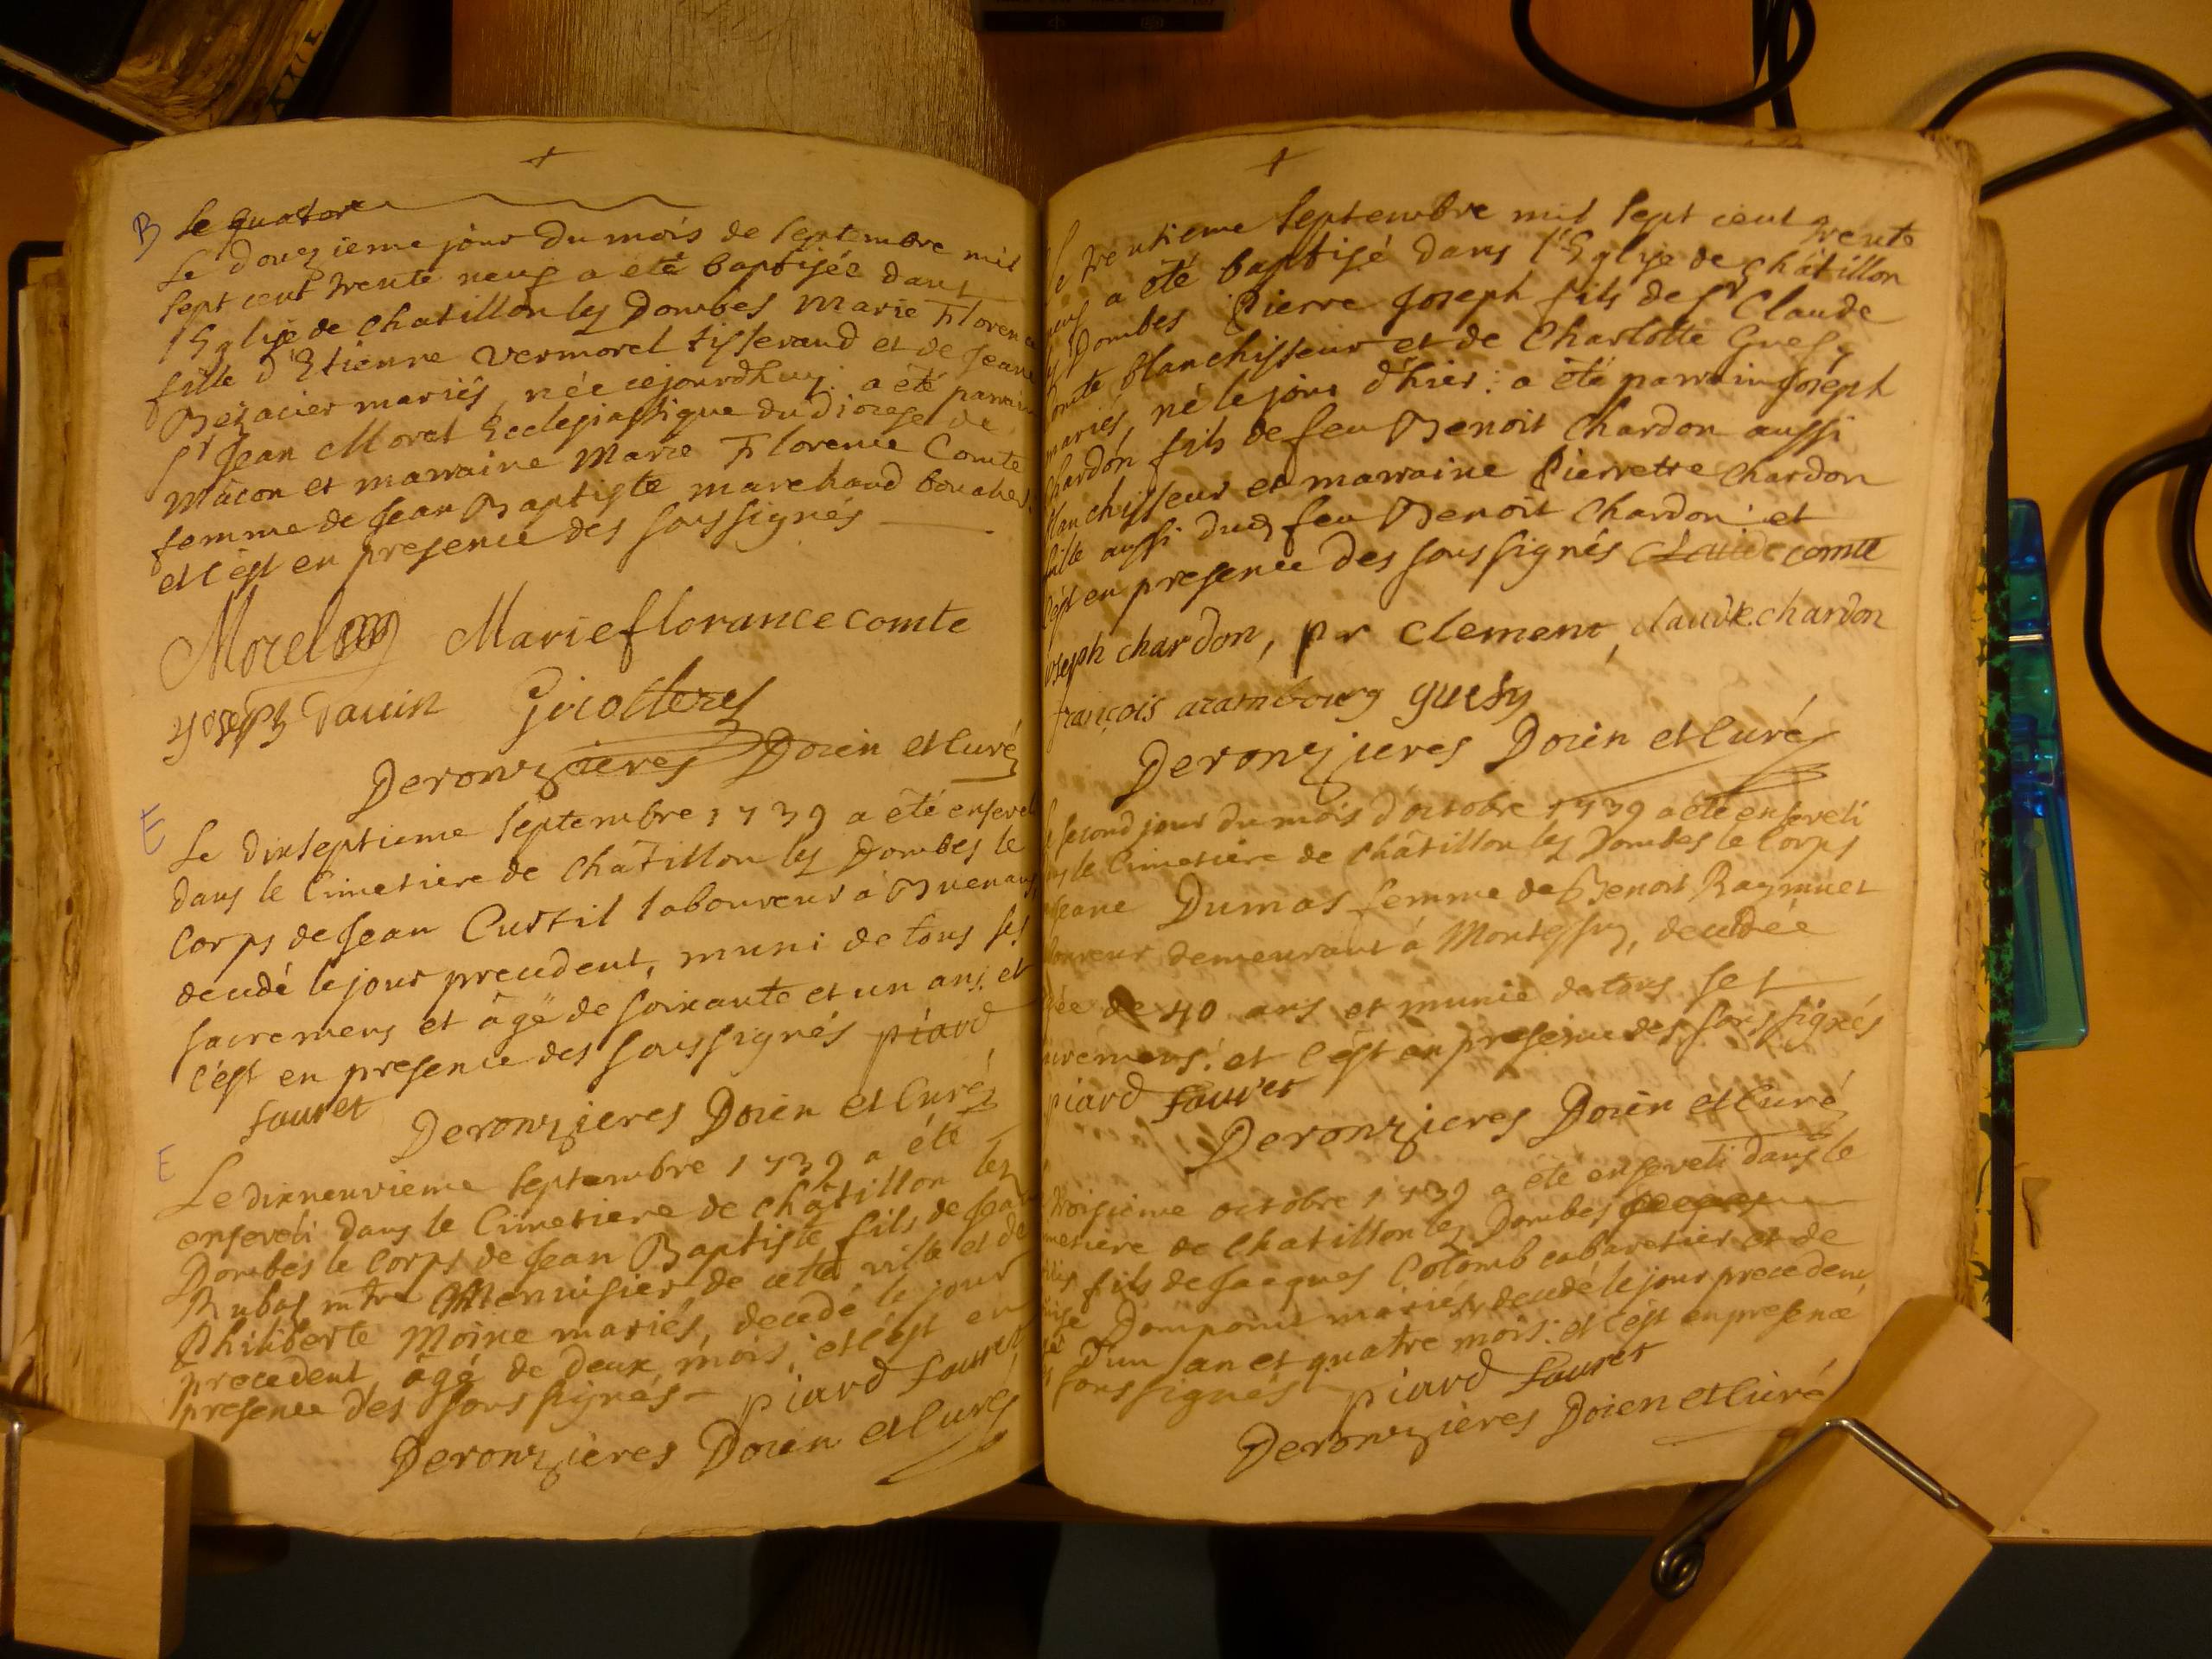 +
B Le quator
Le douzieme jour du mois de Septembre mil
sept cent trente neuf a eté baptisée dans
l'Eglise de Chatillon les Dombes Marie Floren
fille d'Etienne Vermorel tisserand et de Jeane
Bezacier mariés, née cejourdhuy: a été parrain
Sr Jean Morel Ecclesiastique du diocese de
Mâcon et marraine Marie Florence Comte
femme de Jean Baptiste marchand
et c'est en presence des soussignés
Morel Marie florance comte
Joseph
Deronzieres Doïen et Curé
E
Le dixseptieme Septembre 1739 a été enseveli
dans le Cimetiere de Châtillon les Dombes le
Corps de Jean Curtil laboureur à Buenans
decedé le jour precedent, muni de tous ses
sacremens et âgé de soixante et un ans, et
c'est en presence des soussignés piard
fauret
Deronzieres Doïen et Curé
E
Le dixneuvieme Septembre 1739 a été
enseveli dans le Cimetiere de Châtillon les
Dombes le Corps de Jean Baptiste fils de Jean
Rubat mtre Menuisier de cette ville et de
Philiberte Moine mariés, decedé le jour
precedent, âgé de deux mois, et c'est en
presence des soussignés piard fauret
Deronzières Doïen et Curé
+
Le trentieme Septembre mil sept cent trente
neuf a été baptisé dans l'Eglise de Châtillon
les Dombes Pierre Joseph fils de Sr Claude
Comte Blanchisseur et de Charlotte
mariés, né le jour d'hier: a été parrain Joseph
Chardon fils de feu Benoit Chardon aussi
Blanchisseur et marraine Pierrette Chardon
fille aussi dud feu Benoit Chardon: et
c'est en presence des soussignés Claude comte
Joseph chardon, pr clement, claude chardon
françois arambourg
Deronzieres Doïen et Curé
second jour du mois d'octobre 1739 a été enseveli
le Cimetiere de Châtillon les Dombes le Corps
Jeane Dumas femme de Benoit
demeurant à Montessuy, decedée
de 40 ans et munie de tous ses
et c'est en presence des soussignés
piard fauret
Deronzieres Doïen et Curé
troisieme octobre 1739 a été enseveli dans le
de Chatillon les Dombes
fils de Jacques Colomb cabaretier et de
Dompoint mariés, decedé le jour precedent
D'un an et quatre mois: et c'est en presence
soussignés piard fauret
Deronzières Doïen et Curé